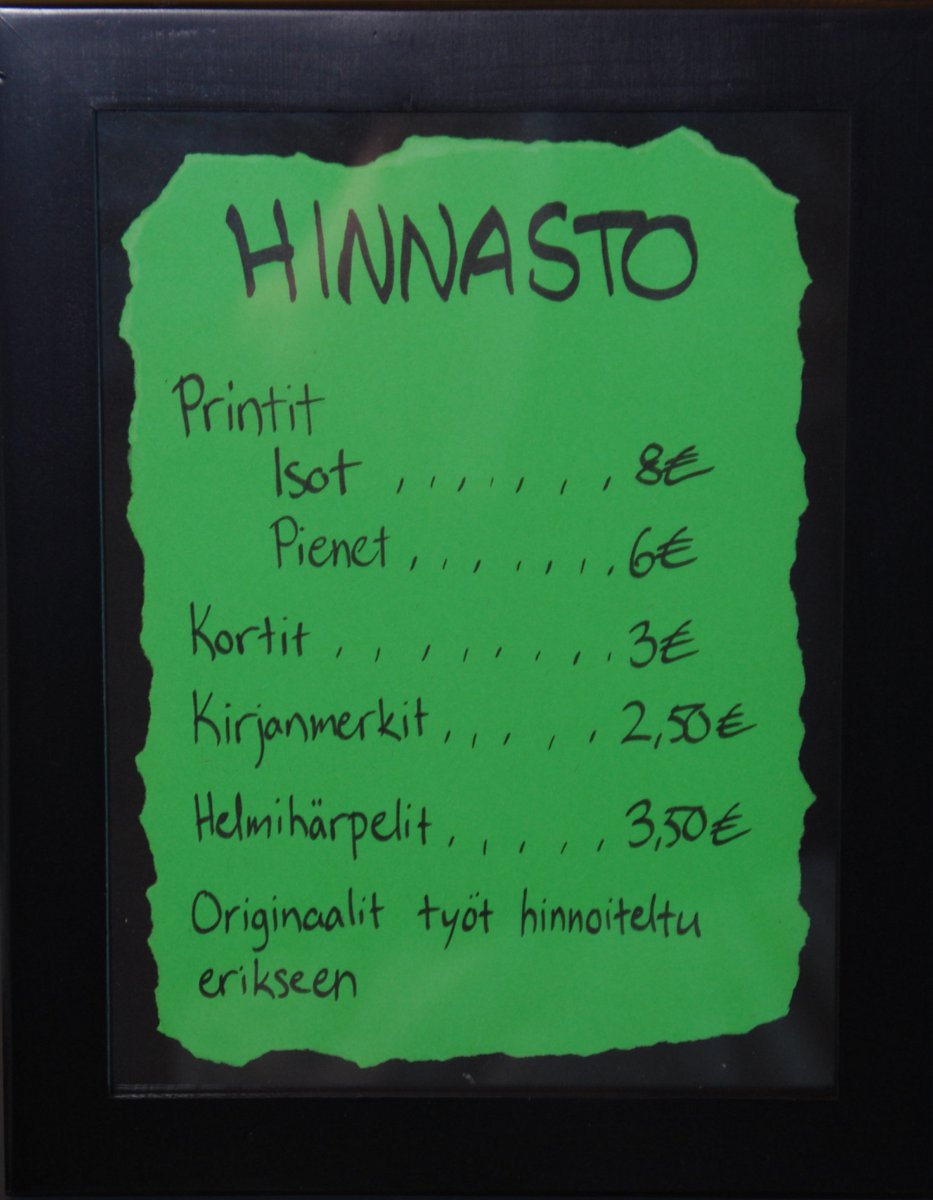 HINNASTO
Printit
Isot , , , , , , , 8€
Pienet , , , , , , , . 6€
Kortit , , , , , , , , . 3€
Kirjanmerkit , , , , , 2,50€
Helmihärpelit , , , , , 3,50€
Originaalit työt hinnoiteltu
erikseen